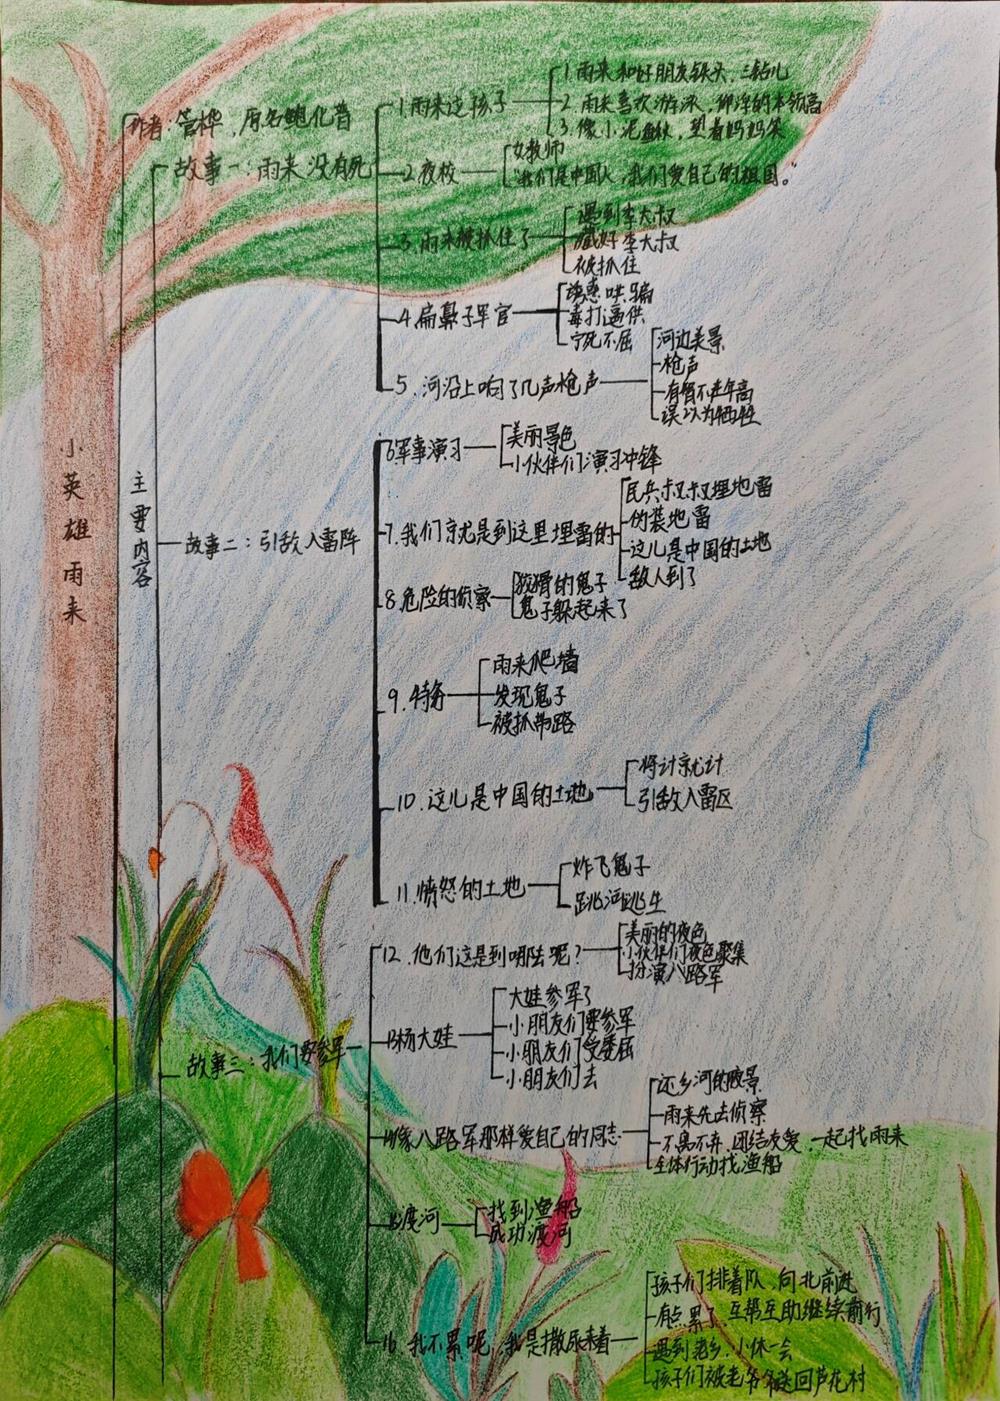 小英雄雨来
主要内容
作者：管桦，原名鲍化普
故事一：雨来没有死
1.雨来这孩子
1.雨来和好朋友铁头、三钻儿
2.雨来喜欢游泳，仰浮的本领高
3.像小泥鳅，望着妈妈笑
2.夜校
女教师
“我们是中国人，我们爱自己的祖国。”
3.雨来被抓住了
遇到李大叔
藏好李大叔
被抓住
4.扁鼻子军官
诱惑哄骗
毒打逼供
宁死不屈
5.河沿上响了几声枪声
河边美景
枪声
有智不在年高
误以为牺牲
故事二：引敌入雷阵
6军事演习
美丽景色
小伙伴们演习冲锋
7.我们就是到这里埋雷的
民兵叔叔埋地雷
伪装地雷
这儿是中国的土地
敌人到了
8.危险的侦察
狡猾的鬼子
鬼子躲起来了
9.
雨来爬墙
发现鬼子
被抓带路
10.这儿是中国的土地
将计就计
引敌入雷区
11.愤怒的土地
炸飞鬼子
跳河逃生
故事三：我们要参军
12.他们这是到哪去呢？
美丽的夜色
小伙伴们夜色聚集
扮演八路军
13杨大娃
大娃参军了
小朋友们要参军
小朋友们受委屈
小朋友们去
14像八路军那样爱自己的同志
还乡河的夜景
雨来先去侦察
不离不弃，团结友爱，一起找雨来
全体行动找渔船
15渡河
找到渔船
成功渡河
16.我不累呢，我是撒尿来着
孩子们排着队，向北前进
有点累了，互帮互助继续前行
遇到老乡，小休一会
孩子们被老爷爷送回芦花村